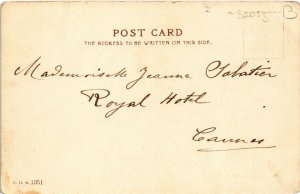 POST CARD
THE ADDRESS TO BE WRITTEN ON THIS SIDE.
Mademoiselle Jeanne Sabatier
Royal Hotel
Cannes